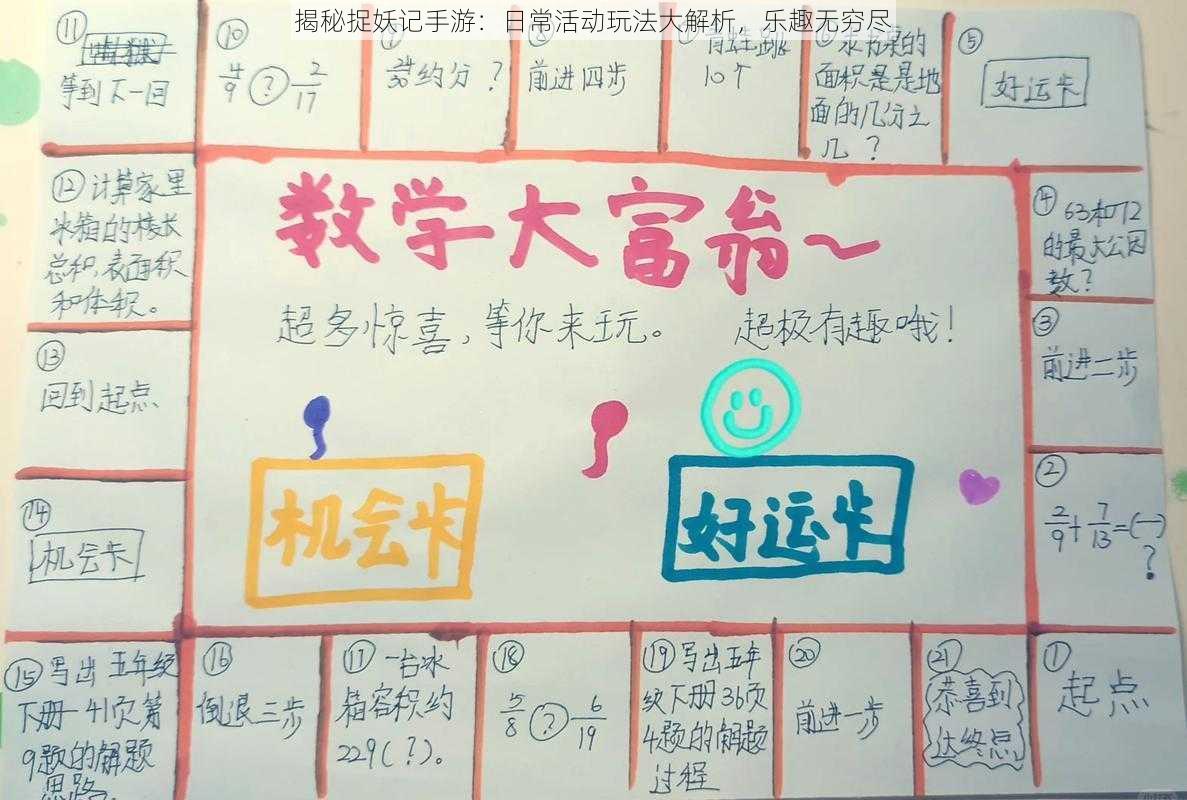 揭秘捉妖记手游：日常活动玩法大解析，乐趣无穷尽
⑪
等到下一回
⑩
4/9 ? 2/17
24/30约分？
前进四步
青蛙跳
10个
的
面积是是地
面的几分之
几？
⑤
好运卡
⑫计算家里
冰箱的棱长
总和，表面积
和体积。
数学大富翁～
超多惊喜，等你来玩。 超极有趣哦！
④ 63和72
的最大公因
数？
③
前进二步
⑬
回到起点
机会卡
好运卡
②
2/9+7/13=(—)
?
⑭
机会卡
⑮写出五年级
下册41页第
9题的解题
思路。
⑯
倒退三步
⑰ 一台冰
箱容积约
229(?)。
⑱
5/8 ? 6/19
⑲写出五年
级下册36页
4题的解题
过程
⑳
前进一步
㉑
恭喜到
达终点
①
起点